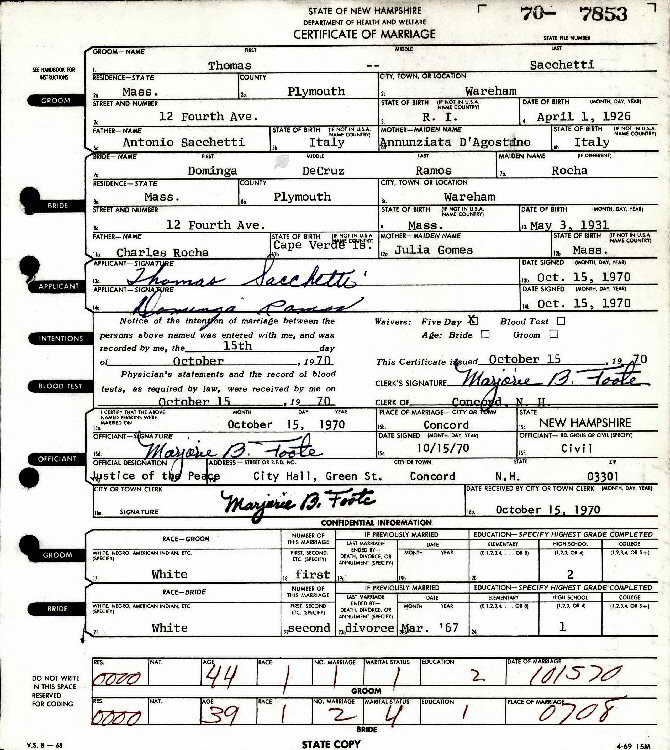 STATE OF NEW HAMPSHIRE
DEPARTMENT OF HEALTH AND WELFARE
CERTIFICATE OF MARRIAGE
70- 7853
STATE FILE NUMBER
SEE HANDBOOK FOR INSTRUCTIONS
GROOM—NAME FIRST MIDDLE LAST
Thomas -- Sacchetti
RESIDENCE—STATE COUNTY CITY, TOWN, OR LOCATION
Mass. Plymouth Wareham
GROOM
STREET AND NUMBER STATE OF BIRTH (IF NOT IN U.S.A. NAME COUNTRY) DATE OF BIRTH (MONTH, DAY, YEAR)
12 Fourth Ave. R. I. April 1, 1926
FATHER—NAME STATE OF BIRTH (IF NOT IN U.S.A. NAME COUNTRY) MOTHER—MAIDEN NAME STATE OF BIRTH (IF NOT IN U.S.A. NAME COUNTRY)
Antonio Sacchetti Italy Annunziata D'Agostino Italy
BRIDE—NAME FIRST MIDDLE LAST MAIDEN NAME (IF DIFFERENT)
Dominga DeCruz Ramos Rocha
RESIDENCE—STATE COUNTY CITY, TOWN, OR LOCATION
Mass. Plymouth Wareham
BRIDE
STREET AND NUMBER STATE OF BIRTH (IF NOT IN U.S.A. NAME COUNTRY) DATE OF BIRTH (MONTH, DAY, YEAR)
12 Fourth Ave. Mass. May 3, 1931
FATHER—NAME STATE OF BIRTH (IF NOT IN U.S.A. NAME COUNTRY) MOTHER—MAIDEN NAME STATE OF BIRTH (IF NOT IN U.S.A. NAME COUNTRY)
Charles Rocha Cape Verde Is. Julia Gomes Mass.
APPLICANT—SIGNATURE DATE SIGNED (MONTH, DAY, YEAR)
Thomas Sacchetti Oct. 15, 1970
APPLICANT
APPLICANT—SIGNATURE DATE SIGNED (MONTH, DAY, YEAR)
Dominga Ramos Oct. 15, 1970
Notice of the intention of marriage between the Waivers: Five Day X Blood Test
INTENTIONS
persons above named was entered with me, and was Age: Bride Groom
recorded by me, the 15th day
of October , 1970 This Certificate issued October 15 , 19 70
Physician's statements and the record of blood
BLOOD TEST
tests, as required by law, were received by me on CLERK'S SIGNATURE Marjorie B. Foote
October 15 , 19 70 CLERK OF Concord, N. H.
I CERTIFY THAT THE ABOVE NAMED PERSONS WERE MARRIED ON MONTH DAY YEAR PLACE OF MARRIAGE—CITY OR TOWN STATE
October 15, 1970 Concord NEW HAMPSHIRE
OFFICIANT—SIGNATURE DATE SIGNED (MONTH, DAY, YEAR) OFFICIANT—RELIGIOUS OR CIVIL (SPECIFY)
Marjorie B. Foote 10/15/70 Civil
OFFICIANT
OFFICIAL DESIGNATION ADDRESS—STREET OR R.F.D. NO. CITY OR TOWN STATE ZIP
Justice of the Peace City Hall, Green St. Concord N.H. 03301
CITY OR TOWN CLERK DATE RECEIVED BY CITY OR TOWN CLERK (MONTH, DAY, YEAR)
SIGNATURE Marjorie B. Foote October 15, 1970
CONFIDENTIAL INFORMATION
RACE—GROOM NUMBER OF THIS MARRIAGE IF PREVIOUSLY MARRIED EDUCATION—SPECIFY HIGHEST GRADE COMPLETED
GROOM
WHITE, NEGRO, AMERICAN INDIAN, ETC. (SPECIFY) FIRST, SECOND, ETC. (SPECIFY) LAST MARRIAGE ENDED BY— DEATH, DIVORCE, OR ANNULMENT (SPECIFY) DATE MONTH YEAR ELEMENTARY (0,1,2,3,4, ... OR 8) HIGH SCHOOL (1,2,3, OR 4) COLLEGE (1,2,3,4, OR 5+)
White first 2
RACE—BRIDE NUMBER OF THIS MARRIAGE IF PREVIOUSLY MARRIED EDUCATION—SPECIFY HIGHEST GRADE COMPLETED
BRIDE
WHITE, NEGRO, AMERICAN INDIAN, ETC. (SPECIFY) FIRST, SECOND ETC. (SPECIFY) LAST MARRIAGE ENDED BY— DEATH, DIVORCE, OR ANNULMENT (SPECIFY) DATE MONTH YEAR ELEMENTARY (0,1,2,3,4, ... OR 8) HIGH SCHOOL (1,2,3, OR 4) COLLEGE (1,2,3,4, OR 5+)
White second divorce Mar. '67 1
DO NOT WRITE IN THIS SPACE RESERVED FOR CODING
RES. NAT. AGE RACE NO. MARRIAGE MARITAL STATUS EDUCATION DATE OF MARRIAGE
0000 44 1 1 1 2 101570
GROOM
RES. NAT. AGE RACE NO. MARRIAGE MARITAL STATUS EDUCATION PLACE OF MARRIAGE
0000 39 1 2 4 1 0708
BRIDE
V.S. 8 — 68 STATE COPY 4-69 15M